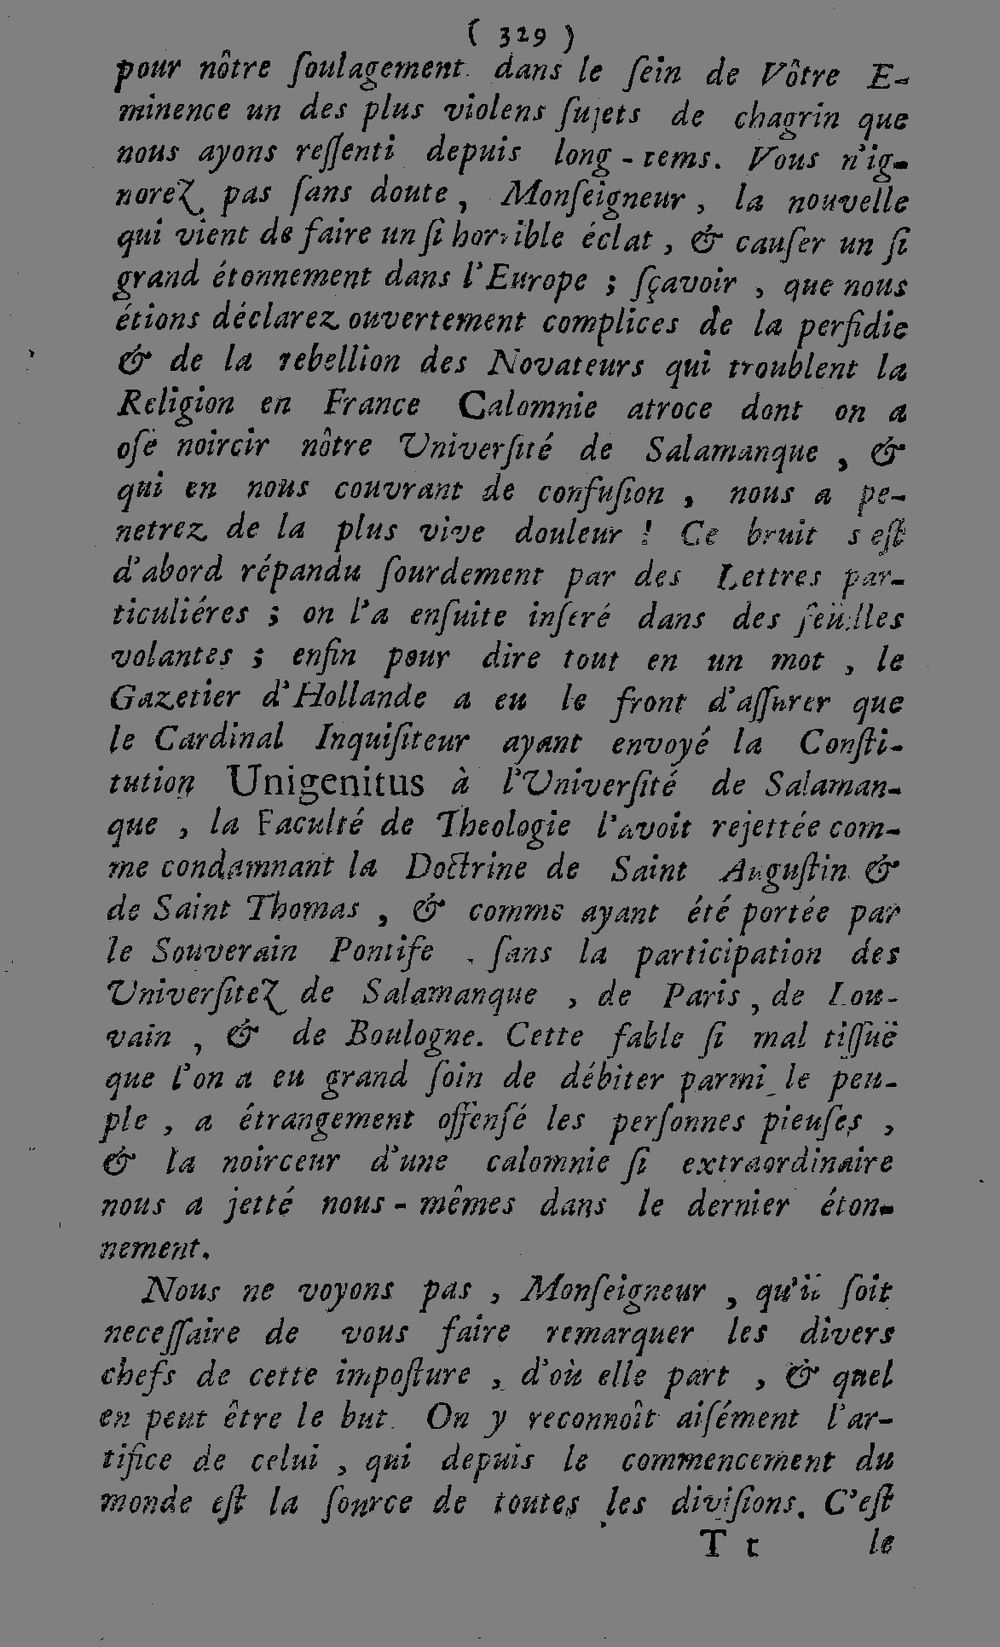 ( 329 )
pour nôtre ſoulagement dans le ſein de Vôtre E-
minence un des plus violens ſujets de chagrin que
nous ayons reſſenti depuis long-tems. Vous n'ig-
norez pas ſans doute, Monſeigneur, la nouvelle
qui vient de faire un ſi horrible éclat, & cauſer un ſi
grand étonnement dans l'Europe ; ſçavoir, que nous
étions déclarez ouvertement complices de la perfidie
& de la rebellion des Novateurs qui troublent la
Religion en France Calomnie atroce dont on a
oſé noircir nôtre Univerſité de Salamanque, &
qui en nous couvrant de confuſion, nous a pe-
netrez de la plus vive douleur ! Ce bruit s eſt
d'abord répandu ſourdement par des Lettres par-
ticuliéres ; on l'a enſuite inſeré dans des feüilles
volantes ; enfin pour dire tout en un mot, le
Gazetier d'Hollande a eu le front d'aſſurer que
le Cardinal Inquiſiteur ayant envoyé la Conſti-
tution Unigenitus à l'Univerſité de Salaman-
que, la Faculté de Theologie l'avoit rejettée com-
me condamnant la Doctrine de Saint Auguſtin &
de Saint Thomas, & comme ayant été portée par
le Souverain Pontife . ſans la participation des
Univerſitez de Salamanque, de Paris, de Lou-
vain, & de Boulogne. Cette fable ſi mal tiſſuë
que l'on a eu grand ſoin de débiter parmi le peu-
ple, a étrangement offenſé les perſonnes pieuſes,
& la noirceur d'une calomnie ſi extraordinaire
nous a jetté nous-mêmes dans le dernier éton-
nement.
Nous ne voyons pas, Monſeigneur, qu'il ſoit
neceſſaire de vous faire remarquer les divers
chefs de cette impoſture, d'où elle part, & quel
en peut être le but. On y reconnoît aiſément l'ar-
tifice de celui, qui depuis le commencement du
monde eſt la ſource de toutes les diviſions. C'eſt
T t le